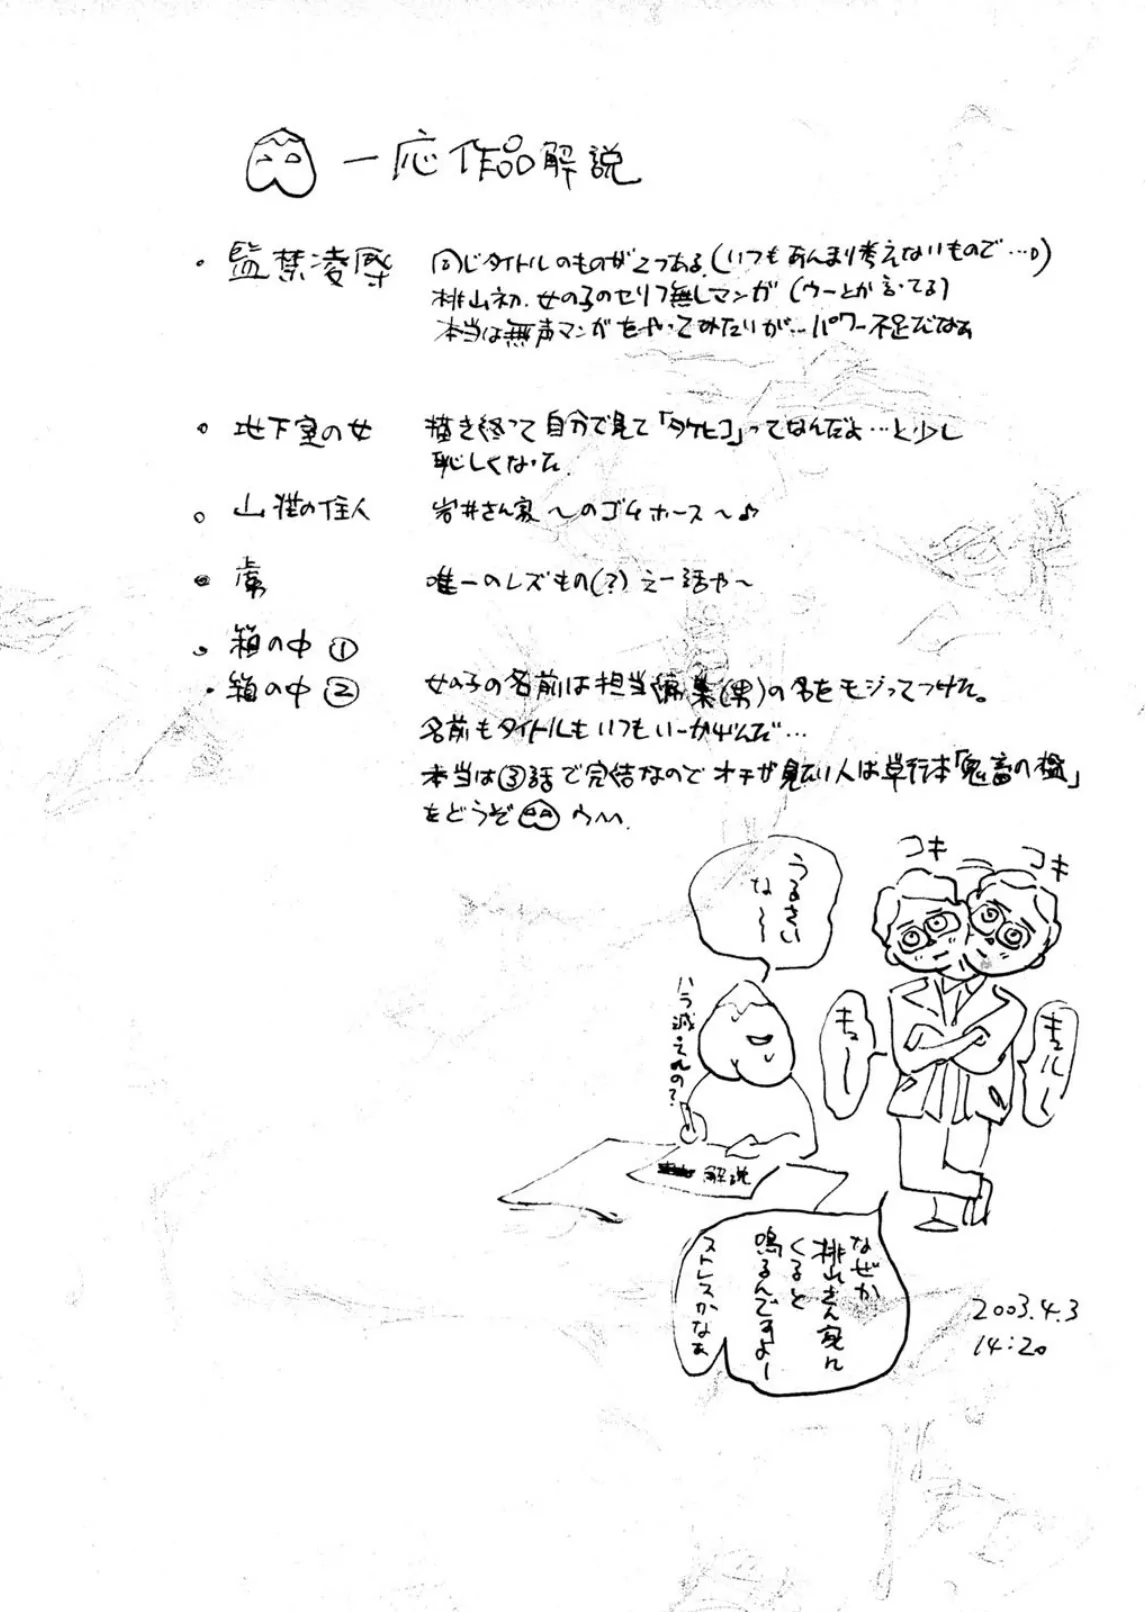 一応作品解説
・監禁凌辱 同じタイトルのものが2つある。(いつもあんまり考えないもので…。)
桃山初、女の子のセリフ無しマンガ(ウーとか言ってる)
本当は無声マンガをやってみたいが…パワー不足だなぁ
・地下室の女 描き終って自分で見て「タケヒコ」ってなんだよ…と少し
恥しくなった。
・山荘の住人 岩井さん家〜のゴムホース〜♪
・虜 唯一のレズもの(?)えー話や〜
・箱の中①
・箱の中② 女の子の名前は担当編集(男)の名をモジってつけた。
名前もタイトルもいつもいーかげんだ…
本当は③話で完結なのでオチが見たい人は単行本「鬼畜の檻」
をどうぞ ウ〜。
コキ
コキ
うるさい
な〜
ハラ減ってんの?
キュー
キュルー
解説
なぜか
桃山さん家に
くると
鳴るんですよー
ストレスかなぁ
2003.4.3
14:20